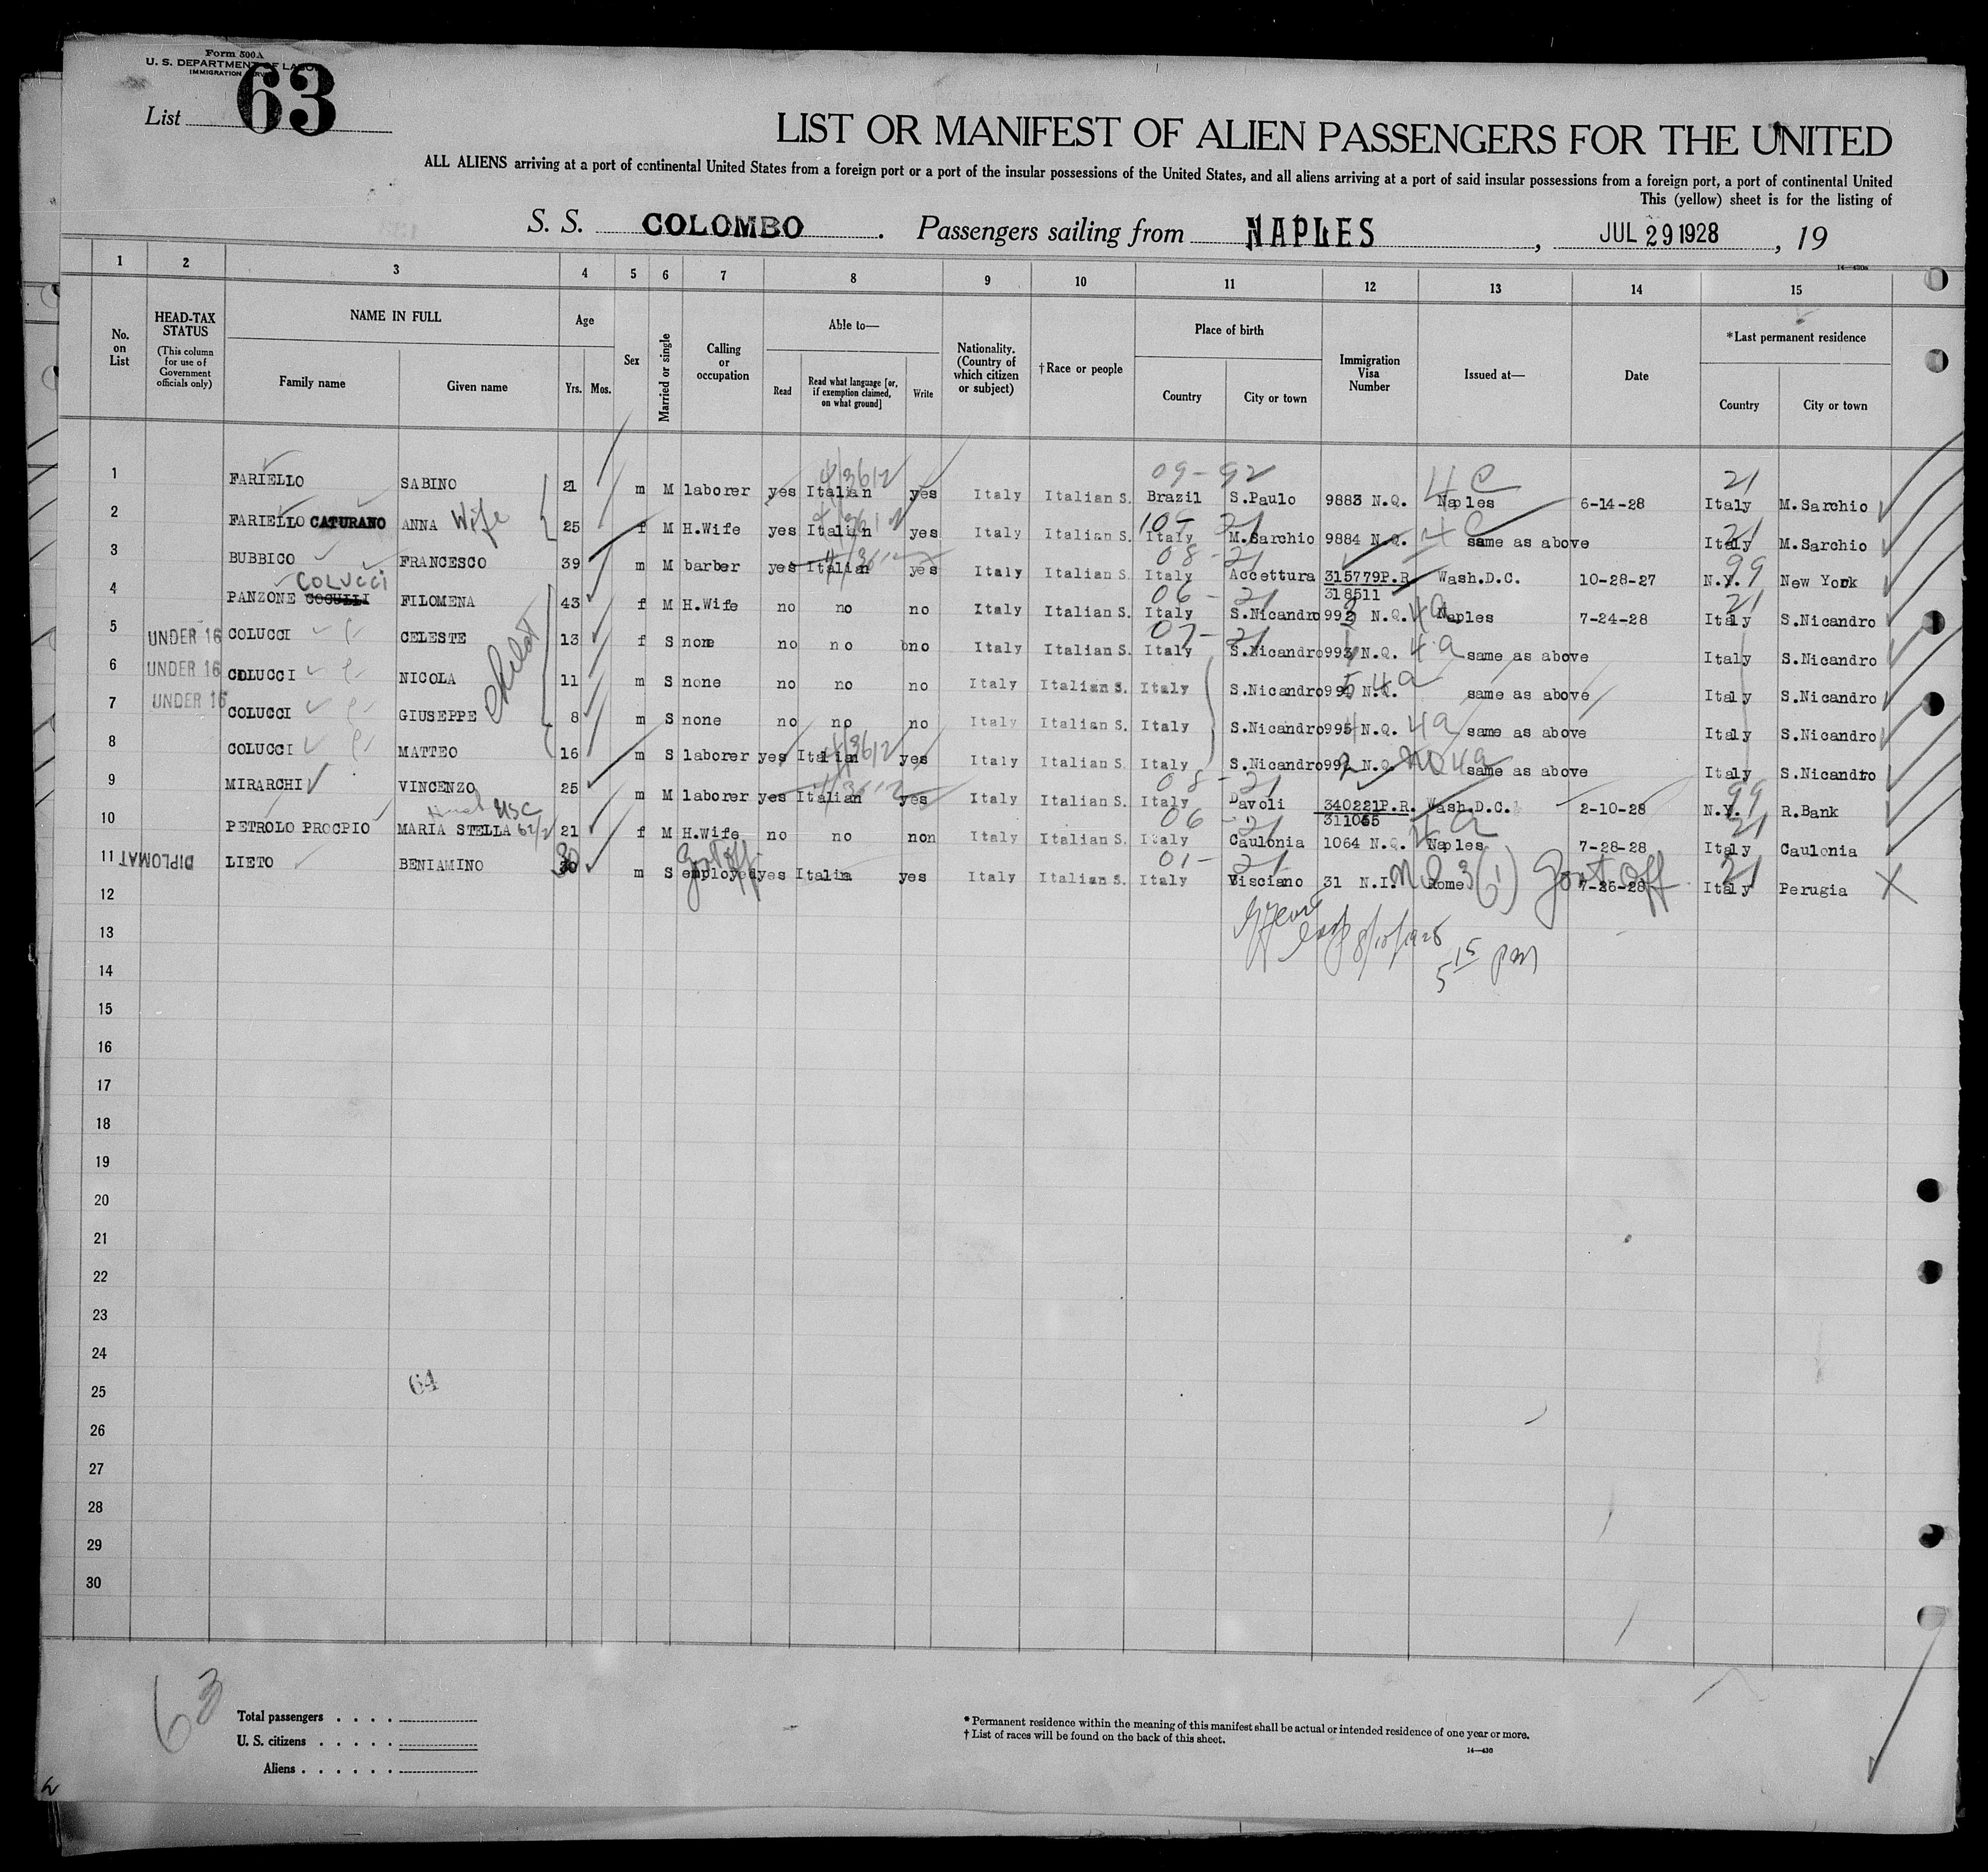 Form 500A
U. S. DEPARTMENT OF LABOR
IMMIGRATION SERVICE
List 63
LIST OR MANIFEST OF ALIEN PASSENGERS FOR THE UNITED
ALL ALIENS arriving at a port of continental United States from a foreign port or a port of the insular possessions of the United States, and all aliens arriving at a port of said insular possessions from a foreign port, a port of continental United
This (yellow) sheet is for the listing of
S. S. COLOMBO. Passengers sailing from NAPLES, JUL 29 1928, 19
14—430a
1 2 3 4 5 6 7 8 9 10 11 12 13 14 15
No. on List
HEAD-TAX STATUS
(This column for use of Government officials only)
NAME IN FULL
Family name Given name
Age
Yrs. Mos.
Sex
Married or single
Calling or occupation
Able to—
Read
Read what language [or, if exemption claimed, on what ground]
Write
Nationality. (Country of which citizen or subject)
†Race or people
Place of birth
Country City or town
Immigration Visa Number
Issued at—
Date
*Last permanent residence
Country City or town
4/3612 09-92 4C 21
1 FARIELLO SABINO 21 m M laborer yes Italian yes Italy Italian S. Brazil S.Paulo 9883 N.Q. Naples 6-14-28 Italy M.Sarchio
10- 21 4C 21
2 FARIELLO CATURANO ANNA Wife 25 f M H.Wife yes Italian yes Italy Italian S. Italy M.Sarchio 9884 N.Q. same as above Italy M.Sarchio
08-21 99
3 BUBBICO FRANCESCO 39 m M barber yes Italian yes Italy Italian S. Italy Accettura 315779P.R. Wash.D.C. 10-28-27 N.Y. New York
318511
COLUCCI 06-21 4a 21
4 PANZONE FILOMENA 43 f M H.Wife no no no Italy Italian S. Italy S.Nicandro 992 N.Q. Naples 7-24-28 Italy S.Nicandro
07-21 4a
5 UNDER 16 COLUCCI CELESTE 13 f S none no no no Italy Italian S. Italy S.Nicandro 993 N.Q. same as above Italy S.Nicandro
4a
6 UNDER 16 COLUCCI NICOLA 11 m S none no no no Italy Italian S. Italy S.Nicandro N.Q. same as above Italy S.Nicandro
4a
7 UNDER 16 COLUCCI GIUSEPPE 8 m S none no no no Italy Italian S. Italy S.Nicandro 995 N.Q. same as above Italy S.Nicandro
4/3612 4a
8 COLUCCI MATTEO 16 m S laborer yes Italian yes Italy Italian S. Italy S.Nicandro N.Q. same as above Italy S.Nicandro
08-21 99
9 MIRARCHI VINCENZO 25 m M laborer yes Italian yes Italy Italian S. Italy Davoli 340221P.R. Wash.D.C. 2-10-28 N.Y. R.Bank
311065
USC 06-21 4a 21
10 PETROLO PROCPIO MARIA STELLA 21 f M H.Wife no no non Italy Italian S. Italy Caulonia 1064 N.Q. Naples 7-28-28 Italy Caulonia
01-21 21
11 DIPLOMAT LIETO BENIAMINO 30 m S employed yes Italia yes Italy Italian S. Italy Visciano 31 N.I. Rome 3(1) Govt Off 7-26-28 Italy Perugia X
Govt off
12
8/10/1928
13
5 15 PM
14
15
16
17
18
19
20
21
22
23
24
64
25
26
27
28
29
30
63
Total passengers
U. S. citizens
Aliens
* Permanent residence within the meaning of this manifest shall be actual or intended residence of one year or more.
† List of races will be found on the back of this sheet.
14—430